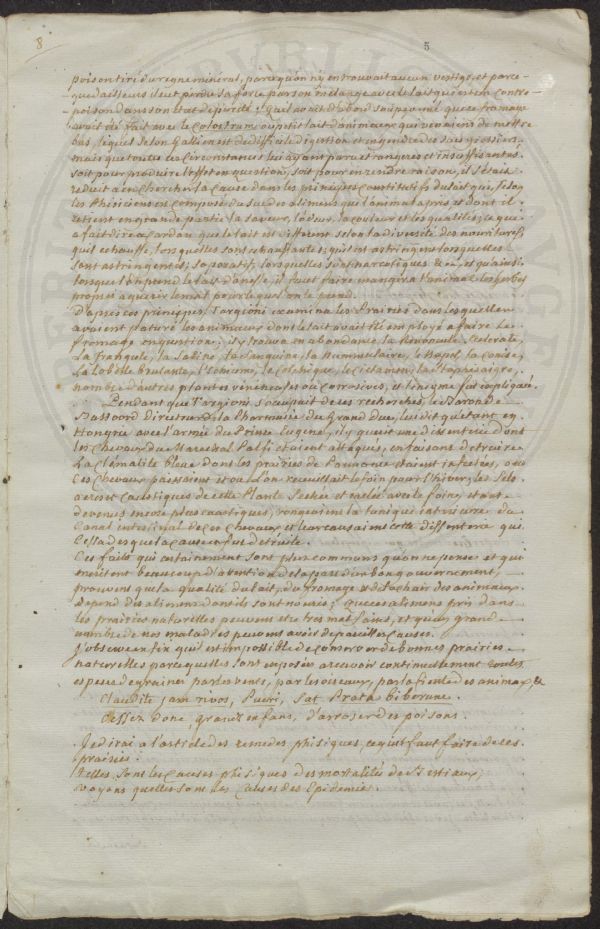 8
5
poison tiré du regne minéral, parcequ'on n'y en trouvait aucun vestige, et parce-
que d'ailleurs il eut perdu sa force par son mélange avec le lait qui est un contre-
-poison dans son état de pureté; qu'il avait d'abord soupçonné que ce fromage
avait été fait avec le Colostrum ou petit lait d'animaux qui venaient de mettre
bas, lequel selon Gallien est de difficile digestion et engendre des sucs grossiers,
mais que toutes ces circonstances lui ayant paru etrangeres et insuffisantes
soit pour produire l'effet en question, soit pour en rendre raison, il s'était
reduit a en chercher la cause dans les principes constitutifs du lait que, selon
les Phisiciens est composé du suc des alimens que l'animal a pris, et dont il
retient en grande partie la saveur, l'odeur, la couleur et les qualités, ce qui
a fait dire a Cardan que le lait est different selon la diversité des nouritures,
qu'il echauffe, lorsqu'elles sont echauffantes; qu'il est astringent lorsqu'elles
sont astringentes; soporatif, lorsqu'elles sont narcotiques &a. et qu'ainsi
lorsque l'on prend le lait d'anesse, il faut faire manger a l'animal les herbes
propres a guerir le mal pour lequel on le prend.
D'après ces principes, Targioni examina les Prairies dans lesquelles
avaient paturé les animaux dont le lait avait été employé a faire le
fromage en question; il y trouva en abondance la Renoncule scelerate,
La frangule, la Sabine, la Sanguine, la Nummulaire, le Napel, la Conise,
La lobelie brulante, l'Esule, le Colchique, le Ciclamen, la Staphisaigre,
nombre d'autres plantes vénéneuses ou corrosives, et l'enigme fut expliquée.
Pendant que Targioni s'occupait de ses recherches, le Baron de
Bassoord Directeur de la Pharmacie du Grand Duc, lui dit qu'etant en
Hongrie avec l'armée du Prince Eugene, il y avait une dissenterie dont
les Chevaux du Marechal Palfi etaient attaqués, en faisant detruire
La Clématite bleue dont les prairies de Pannonie etaient infectées, où
Ces Chevaux paissaient et où l'on recueillait le foin pour l'hiver, les sels
acres et caustiques de cette Plante sechée et mêlée avec le foin, etant
devenus encore plus caustiques, rongeaient la tunique interieure du
Canal intestinal de ces Chevaux et leur causaient cette dissenterie qui
cessa des que la cause en fut detruite.
Ces faits qui certainement sont plus communs qu'on ne pense et qui
méritent beaucoup d'attention de la part d'un bon gouvernement,
prouvent que la qualité du lait, du fromage et de la chair des animaux
depend des alimens dont ils sont nouris; que ces alimens pris dans
les prairies naturelles peuvent etre tres mal sains, et qu'un grand
nombre de nos maladies peuvent avoir de pareilles causes.
J'observe enfin qu'il est impossible de conserver de bonnes prairies
naturelles parcequ'elles sont exposées a recevoir continuellement toutes
especes de graines par les vents, par les oiseaux, par la fiente des animaux, &
Claudite jam rivos, Pueri, Sat Prata biberunt.
Cessez donc, grands enfans, d'arroser des poisons.
Je dirai a l'article des remedes phisiques, ce qu'il faut faire de ces
prairies.
Telles sont les causes phisiques des mortalités de Bestiaux;
Voyons quelles sont les Causes des Epidemies.